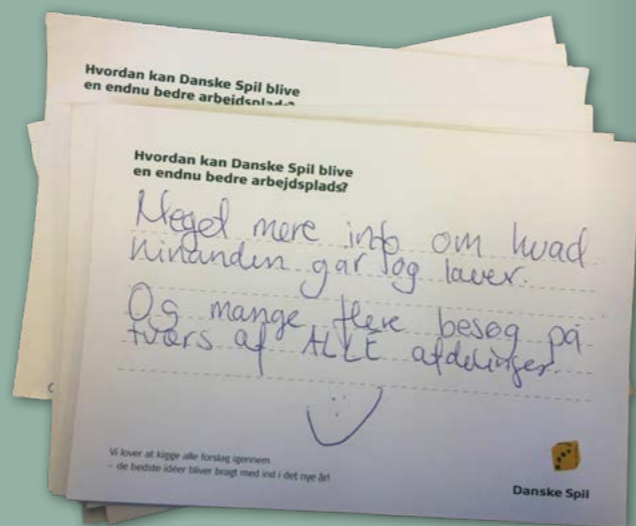 Hvordan kan Danske Spil blive
en endnu bedre arbejdsplads?
Hvordan kan Danske Spil blive
en endnu bedre arbejdsplads?
Meget mere info om hvad
hinanden går og laver.
Og mange flere besøg på
tværs af ALLE afdelinger.
Vi lover at kigge alle forslag igennem
– de bedste idéer bliver bragt med ind i det nye år!
Danske Spil